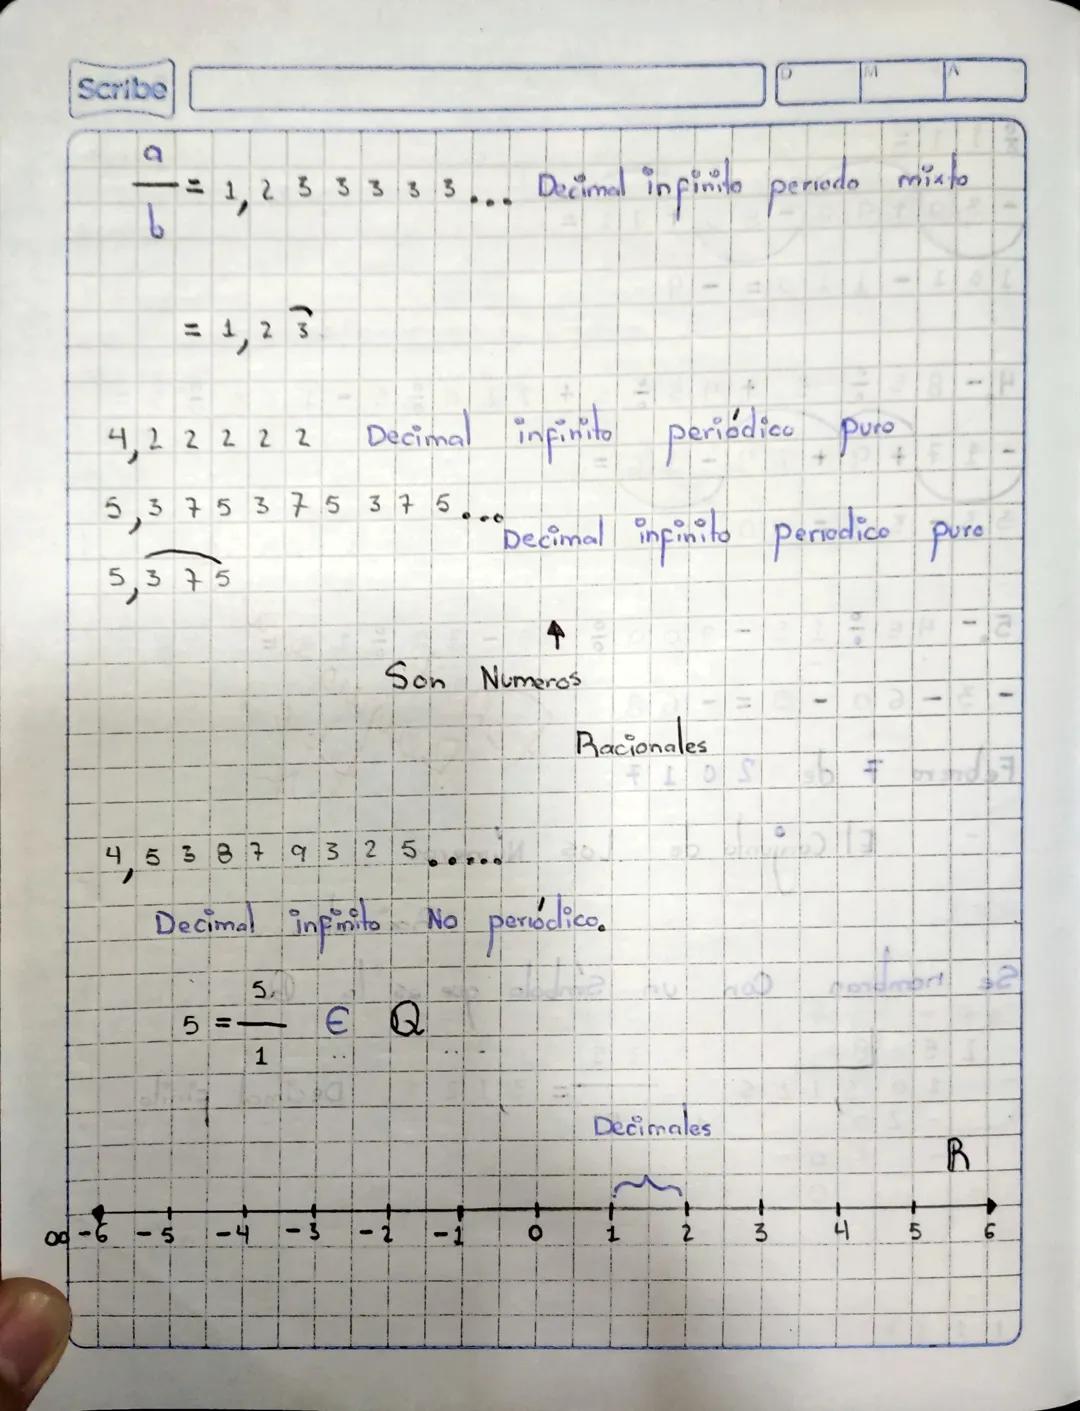 Scribe
D M A
a/b = 1,2 3 3 3 3 3... Decimal infinito periodo mixto
= 1,2 3̅
4,2 2 2 2 2 Decimal infinito periódico puro
5,3 7 5 3 7 5 3 7 5...
Decimal infinito periodico puro
5,3̅ 7̅ 5̅
↑
Son Numeros
Racionales
4,5 3 8 7 9 3 2 5.....
Decimal infinito No periódico.
5 = 5/1 ∈ Q
Decimales
R
∞ -6 -5 -4 -3 -2 -1 0 1 2 3 4 5 6